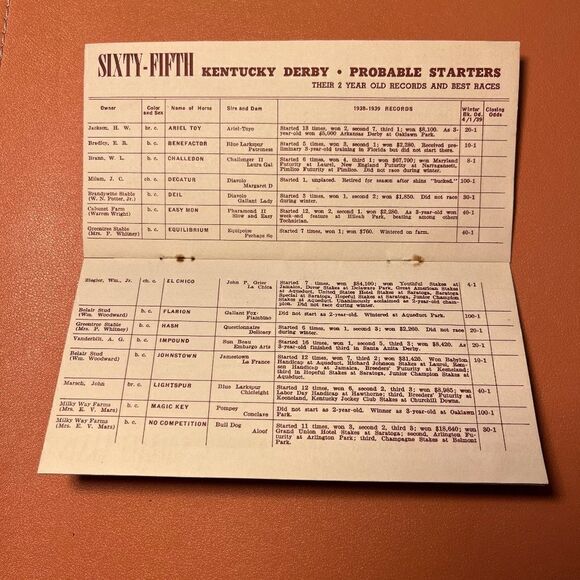 SIXTY-FIFTH KENTUCKY DERBY • PROBABLE STARTERS
THEIR 2 YEAR OLD RECORDS AND BEST RACES
Owner Color and Sex Name of Horse Sire and Dam 1938-1939 RECORDS Winter Bk. Od. 4/1/39 Closing Odds
Jackson, H. W. br. c. ARIEL TOY Ariel-Toyo Started 13 times, won 2, second 7, third 1; won $8,100. As 3- 20-1
year-old won $5,000 Arkansas Derby at Oaklawn Park.
Bradley, E. R. b. c. BENEFACTOR Blue Larkspur Started 5 times, won 3, second 1; won $2,280. Received pre- 10-1
Patroness liminary 3-year-old training in Florida but did not start there.
Brann, W. L. b. c. CHALLEDON Challenger II Started 6 times, won 4, third 1; won $67,700; won Maryland 8-1
Laura Gal Futurity at Laurel, New England Futurity at Narragansett,
Pimlico Futurity at Pimlico. Did not race during winter.
Milam, J. C. ch. c. DECATUR Diavolo Started 1, unplaced. Retired for season after shins "bucked." 100-1
Margaret D
Brandywine Stable b. c. DEIL Diavolo Started 3 times, won 1, second 2; won $1,850. Did not race 30-1
(W. N. Potter, Jr.) Gallant Lady during winter.
Calumet Farm b. c. EASY MON Pharamond II Started 12, won 2, second 2; won $2,280. As 3-year-old won 40-1
(Warren Wright) Slow and Easy week-end feature at Hileah Park, beating among others
Technician.
Greentree Stable b. c. EQUILIBRIUM Equipoise Started 7 times, won 1; won $760. Wintered on farm. 40-1
(Mrs. P. Whitney) Perhaps So
Ziegler, Wm., Jr. ch. c. EL CHICO John P. Grier Started 7 times, won $84,100; won Youthful Stakes at 4-1
La Chica Jamaica, Dover Stakes at Delaware Park, Great American Stakes
at Aqueduct, United States Hotel Stakes at Saratoga, Saratoga
Special at Saratoga, Hopeful Stakes at Saratoga, Junior Champion
Stakes at Aqueduct. Unanimously acclaimed as 2-year-old cham-
pion.
Belair Stud b. c. FLARION Gallant Fox- Did not start as 2-year-old. Wintered at Aqueduct Park. 100-1
(Wm. Woodward) Flambino
Greentree Stable b. c. HASH Questionnaire Started 6 times, won 1, second 3; won $2,260. Did not race 20-1
(Mrs. P. Whitney) Delicacy during winter.
Vanderbilt, A. G. b. c. IMPOUND Sun Beau Started 16 times, won 1, second 5, third 3; won $8,420. As 20-1
Embargo Arts 3-year-old finished third in Santa Anita Derby.
Belair Stud b. c. JOHNSTOWN Jamestown Started 12 times, won 7, third 2; won $31,420. Won Babylon 10-1
(Wm. Woodward) La France Handicap at Aqueduct, Richard Johnson Stakes at Laurel, Rem-
sen Handicap at Jamaica, Breeders' Futurity at Keeneland;
third in Hopeful Stakes at Saratoga, Junior Champion Stakes at
Aqueduct.
Marsch, John br. c. LIGHTSPUR Blue Larkspur Started 12 times, won 6, second 2, third 3; won $8,985; won 40-1
Chicleight Labor Day Handicap at Hawthorne; third, Breeders' Futurity at
Keeneland, Kentucky Jockey Club Stakes at Churchill Downs.
Milky Way Farms b. c. MAGIC KEY Pompey Did not start as 2-year-old. Winner as 3-year-old at Oaklawn 100-1
(Mrs. E. V. Mars) Conclave Park.
Milky Way Farms b. c. NO COMPETITION Bull Dog Started 11 times, won 3, second 2, third 3; won $18,640; won 30-1
(Mrs. E. V. Mars) Aloof Grand Union Hotel Stakes at Saratoga; second, Arlington Fu-
turity at Arlington Park; third, Champagne Stakes at Belmont
Park.